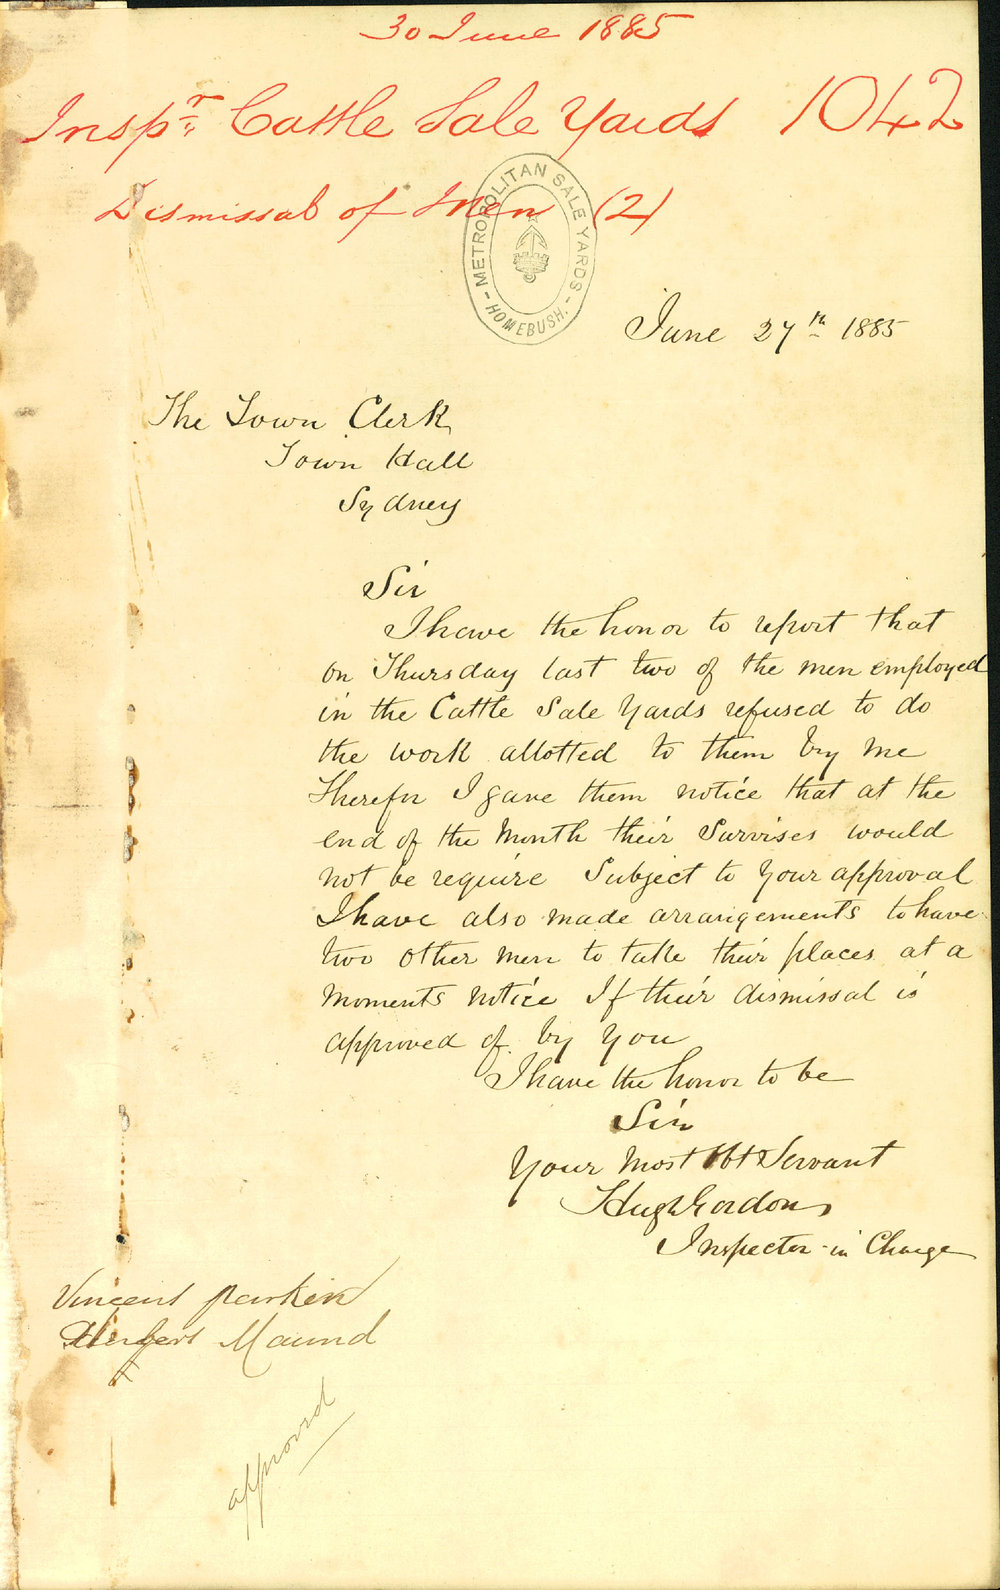 30 June 1885
Inspr. Cattle Sale Yards 1042
Dismissal of Men (2)
METROPOLITAN SALE YARDS - HOMEBUSH. -
June 27th 1885
The Town Clerk
Town Hall
Sydney
Sir
I have the honor to report that
on Thursday last two of the men employed
in the Cattle Sale Yards refused to do
the work allotted to them by me
Therefor I gave them notice that at the
end of the Month their Survises would
not be require Subject to Your approval
I have also made arrangements to have
two other men to take their places at a
moments notice If their dismissal is
approved of by You
I have the honor to be
Sir
Your Most Obt Servant
Hugh Gordon
Inspector in Charge
Vincent Parkin
Maund
approved